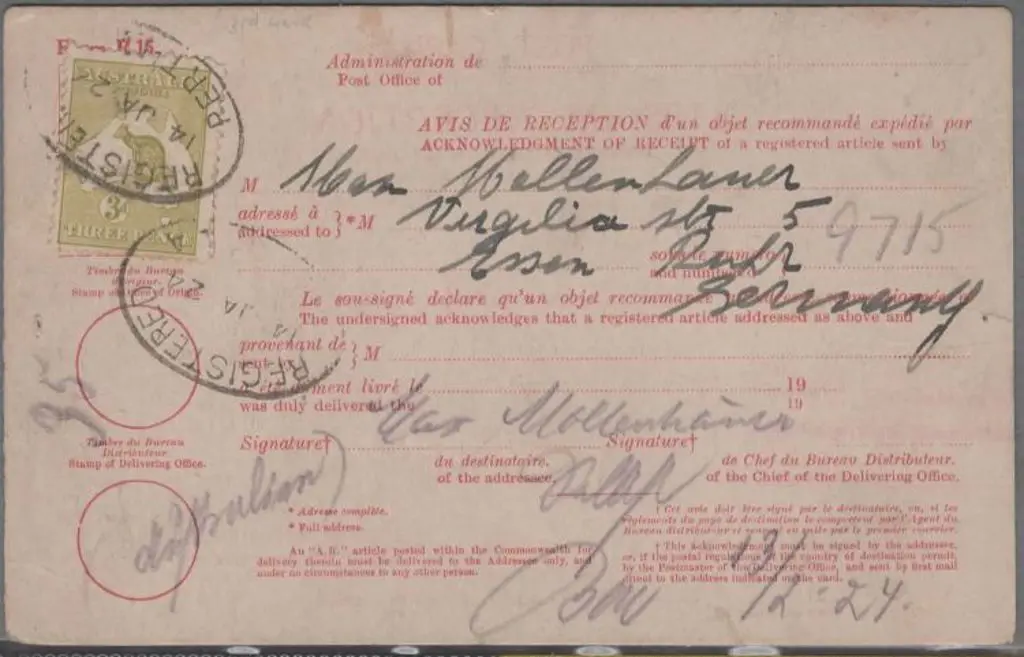 3rd ward
R 15.
Administration de
Post Office of
AUSTRALIA
3d
THREE PENCE
REGISTERED
14 JA 2
PERTH
AVIS DE RECEPTION d'un objet recommandé expédié par
ACKNOWLEDGMENT OF RECEIPT of a registered article sent by
M Max Mollenhauer
adressé à
addressed to } * M Virgilia str 5
9715
sous le numéro
and number
Essen Ruhr
Germany
Timbre du Bureau
d'origine.
Stamp of Office of Origin.
REGISTERED
14 JA 24
Le sou-signé declare qu'un objet recommandé
The undersigned acknowledges that a registered article addressed as above and
provenant de
sent by } M
a dûment livré le 19
was duly delivered the 19
Max Mollenhauer
Timbre du Bureau
Distributeur.
Stamp of Delivering Office.
Signature† Signature†
du destinataire. de Chef du Bureau Distributeur.
of the addressee. of the Chief of the Delivering Office.
* Adresse complète.
* Full address.
† Cet avis doit être signé par le destinataire, ou, si les
règlements du pays de destination le comportent par l'Agent du
Bureau distributeur et renvoyé en suite par le premier courrier.
An "A.R." article posted within the Commonwealth for
delivery therein must be delivered to the Addressee only, and
under no circumstances to any other person.
† This acknowledgment must be signed by the addressee,
or, if the postal regulations of the country of destination permit,
by the Postmaster of the Delivering Office, and sent by first mail
direct to the address indicated on the card.
12-24.